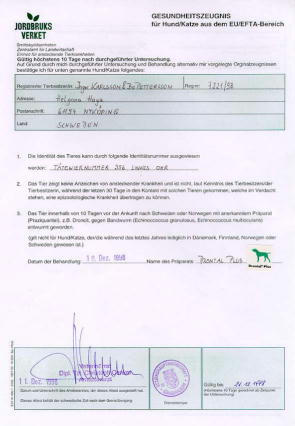 JORDBRUKS
VERKET
GESUNDHEITSZEUGNIS
für Hund/Katze aus dem EU/EFTA-Bereich
Smittskyddsenheten
Zentralamt für Landwirtschaft
Einheit für ansteckende Tierkrankheiten
Gültig höchstens 10 Tage nach durchgeführter Untersuchung.
Auf Grund durchgeführter Untersuchung und Behandlung alternativ mir vorgelegte Originalzeugnissen
bestätige ich für unten genannte Hund/Katze folgendes:
Registrierter Tierbesitzer/in: Inge KARLSSON & Bo PETTERSSON
Adresse: Helgona Haga
Postanschrift: 61194 NYKÖPING
Land SCHWEDEN
1. Die Identität des Tieres kann durch folgende Identitätsnummer ausgewiesen
werden: TÄTOWIERNUMMER 336 LINKES OHR
2. Das Tier zeigt keine Anzeichen von ansteckender Krankheit und ist, laut Kenntnis des Tierbesitzers/der
Tierbesitzerin, während der letzten 30 Tage in den Kontakt mit solchen Tieren gekommen, welche im Verdacht
stehen, eine epizootologische Krankheit übertragen zu können.
3. Das Tier innerhalb von 10 Tagen vor der Ankunft nach Schweden oder Norwegen mit anerkanntem Präparat
(Praziquantel), z.B. Droncit, gegen Bandwurm (Echinococcus granulosus, Echinococcus multilocularis)
entwurmt worden.
(gilt nicht für Hund/Katze, der/die während des letztes Jahres lediglich in Dänemark, Finnland, Norwegen oder
Schweden gewesen ist.)
Datum der Behandlung: 11. Dez. 1998 Name des Präparats: DRONTAL PLUS
Drontal Plus
11. Dez. 1998
Dienststempel
Gültig bis 21.12.1998